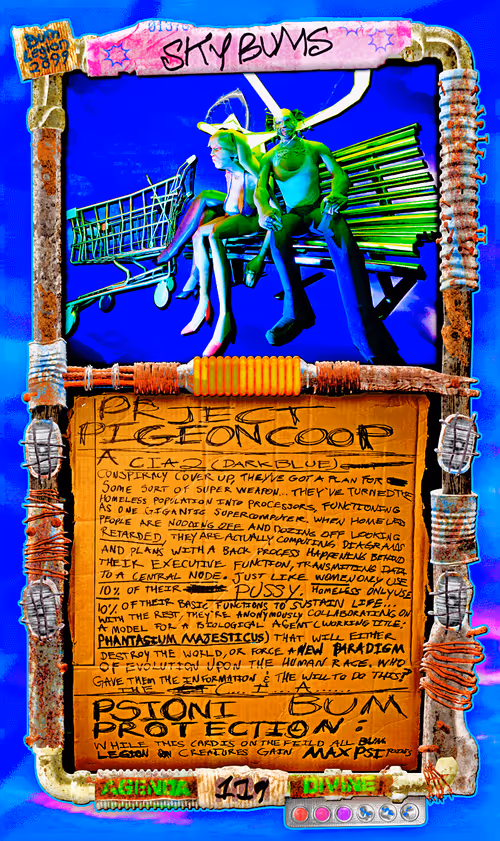 Bum
Legion
2099
SKYBUMS
PRJECT
PIGEONCOOP
A CIA2 (DARKBLUE)
CONSPIRACY COVER UP, THEY'VE GOT A PLAN FOR
SOME SORT OF SUPER WEAPON... THEY'VE TURNED THE
HOMELESS POPULATION INTO PROCESSORS, FUNCTIONING
AS ONE GIGANTIC SUPERCOMPUTER. WHEN HOMELESS
PEOPLE ARE NODDING OFF AND DOZING OFF LOOKING
RETARDED, THEY ARE ACTUALLY COMPUTING DIAGRAMS
AND PLANS WITH A BACK PROCESS HAPPENING BEHIND
THEIR EXECUTIVE FUNCTION, TRANSMITING DATA
TO A CENTRAL NODE. JUST LIKE WOMEN ONLY USE
10% OF THEIR PUSSY. HOMELESS ONLY USE
10% OF THEIR BASIC FUNCTIONS TO SUSTAIN LIFE...
WITH THE REST, THEY'RE ANONYMOUSLY COLLABORATING ON
A MODEL FOR A BIOLOGICAL AGENT (WORKING TITLE:
PHANTASIUM MAJESTICUS) THAT WILL EITHER
DESTROY THE WORLD, OR FORCE A NEW PARADIGM
OF EVOLUTION UPON THE HUMAN RACE. WHO
GAVE THEM THE INFORMATION & THE WILL TO DO THIS?
THE C... I... A......
PSIONI BUM
PROTECTION:
WHILE THIS CARD IS ON THE FEILD ALL BUM
LEGION CREATURES GAIN MAX PSI POINTS
AGENDA 119 DIVINE